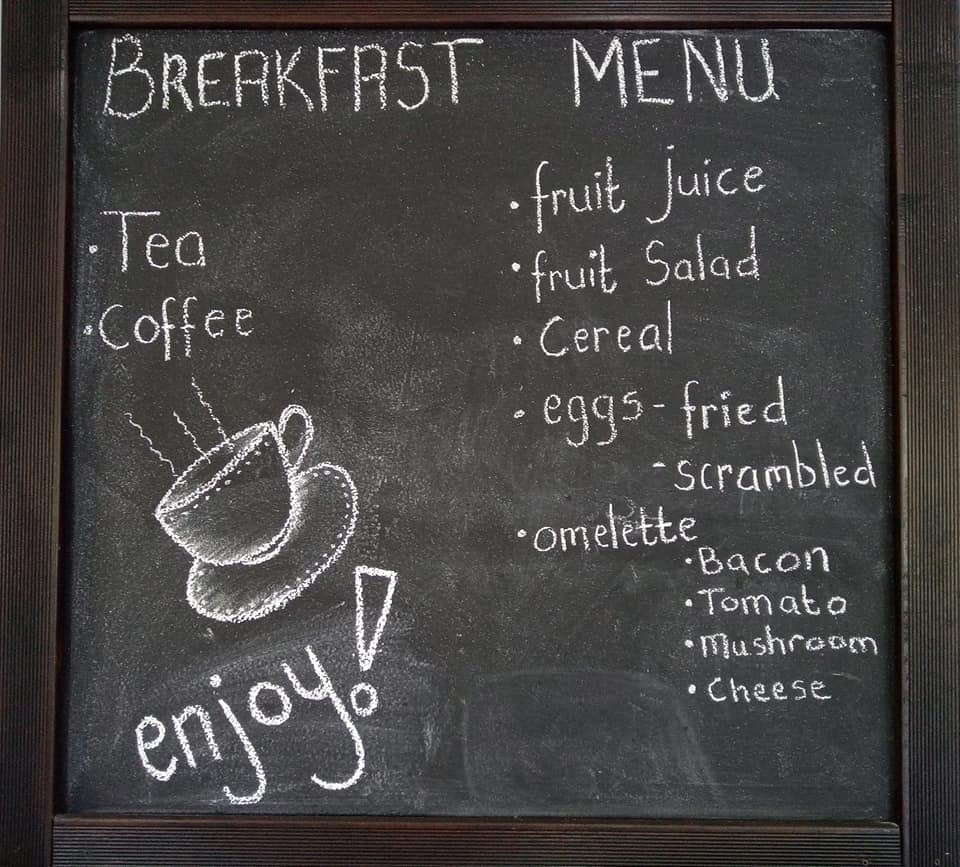 BREAKFAST MENU
· Tea
· Coffee
enjoy!
· fruit juice
· fruit Salad
· Cereal
· eggs - fried
- scrambled
· omelette
· Bacon
· Tomato
· Mushroom
· Cheese